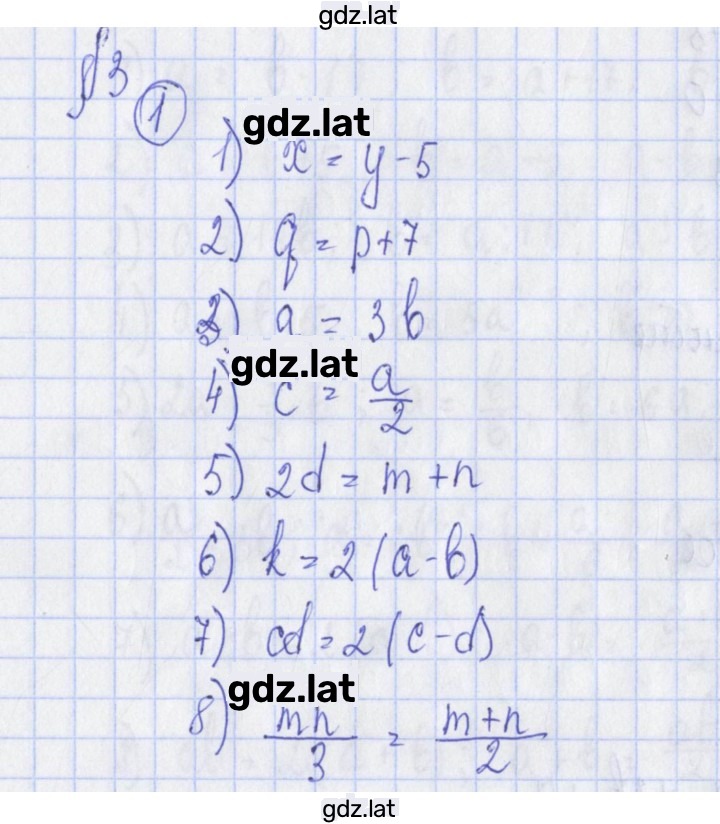 gdz.lat
§3
1
gdz.lat
1) x = y - 5
2) q = p + 7
3) a = 3b
gdz.lat
4) c = a/2
5) 2d = m + n
6) k = 2(a - b)
7) cd = 2(c - d)
gdz.lat
8) mn/3 = m + n/2
gdz.lat